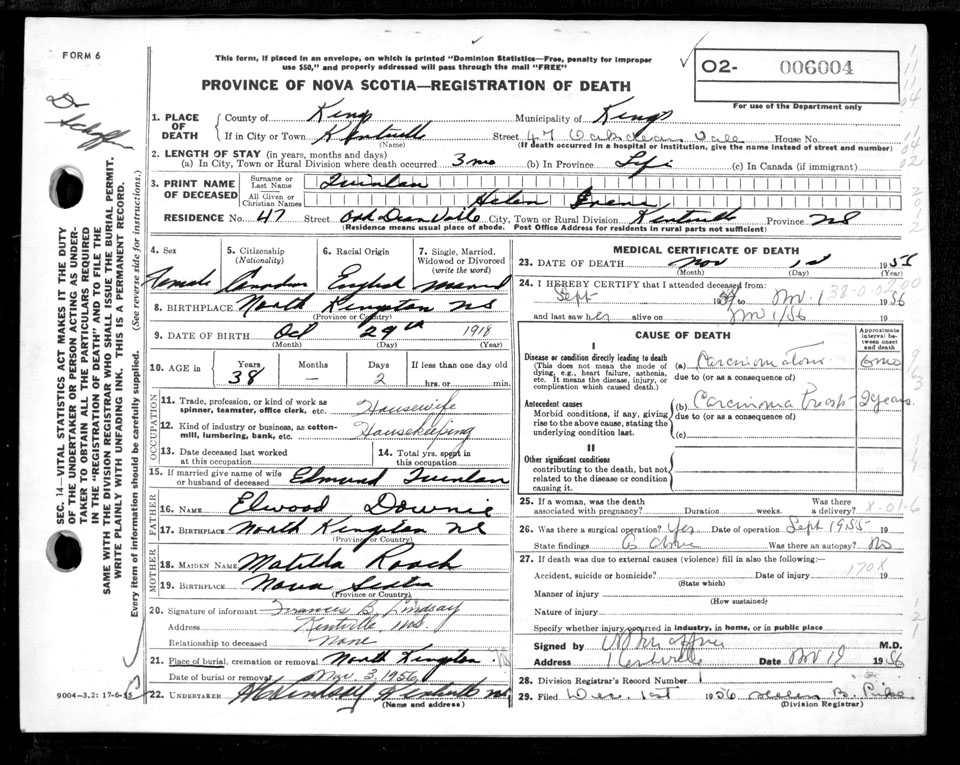 FORM 6
This form, if placed in an envelope, on which is printed "Dominion Statistics—Free, penalty for improper
use $50," and properly addressed will pass through the mail "FREE"
PROVINCE OF NOVA SCOTIA—REGISTRATION OF DEATH
O2- 006004
For use of the Department only
1. PLACE OF DEATH
County of Kings Municipality of Kings
If in City or Town Kentville Street 47 House No.
(Name) (If death occurred in a hospital or Institution, give the name instead of street and number)
2. LENGTH OF STAY (in years, months and days)
(a) In City, Town or Rural Division where death occurred 3 mo (b) In Province Life (c) In Canada (if immigrant)
3. PRINT NAME OF DECEASED
Surname or Last Name Quinlan
All Given or Christian Names Helen
RESIDENCE No. 47 Street Oak Dean Vale City, Town or Rural Division Kentville Province NS
(Residence means usual place of abode. Post Office Address for residents in rural parts not sufficient)
4. Sex 5. Citizenship (Nationality) 6. Racial Origin 7. Single, Married, Widowed or Divorced (write the word)
Female Canadian English Married
8. BIRTHPLACE North Kingston NS
(Province or Country)
9. DATE OF BIRTH Oct 29th 1918
(Month) (Day) (Year)
10. AGE in Years Months Days If less than one day old
38 — 2 hrs. or min.
OCCUPATION
11. Trade, profession, or kind of work as spinner, teamster, office clerk, etc. Housewife
12. Kind of industry or business, as cotton-mill, lumbering, bank, etc. Housekeeping
13. Date deceased last worked at this occupation 14. Total yrs. spent in this occupation
15. If married give name of wife or husband of deceased Edmund Quinlan
FATHER
16. NAME Elwood Downie
17. BIRTHPLACE North Kingston NS
(Province or Country)
MOTHER
18. MAIDEN NAME Matilda Roach
19. BIRTHPLACE Nova Scotia
(Province or Country)
20. Signature of informant Frances B. Lindsay
Address Kentville, NS
Relationship to deceased None
21. Place of burial, cremation or removal North Kingston NS
Date of burial or removal Nov. 3, 1956
22. UNDERTAKER Kentville NS
(Name and address)
MEDICAL CERTIFICATE OF DEATH
23. DATE OF DEATH Nov 195
(Month) (Day) (Year)
24. I HEREBY CERTIFY that I attended deceased from:
Sept to Nov. 1 1956
and last saw her alive on Nov 1/56 19
CAUSE OF DEATH
Approximate interval between onset and death
I
Disease or condition directly leading to death
(This does not mean the mode of dying, e.g., heart failure, asthenia, etc. It means the disease, injury, or complication which caused death.)
(a) 6 mo
due to (or as a consequence of)
Antecedent causes
Morbid conditions, if any, giving rise to the above cause, stating the underlying condition last.
(b) Carcinoma 2 years
due to (or as a consequence of)
(c)
II
Other significant conditions
contributing to the death, but not related to the disease or condition causing it.
25. If a woman, was the death associated with pregnancy? Duration weeks. Was there a delivery?
26. Was there surgical operation? Yes Date of operation Sept 1955 19
State findings as above Was there an autopsy? No
27. If death was due to external causes (violence) fill in also the following:
Accident, suicide or homicide? Date of injury 19
(State which)
170X
Manner of injury
(How sustained)
Nature of injury
Specify whether injury occurred in industry, in home, or in public place
Signed by M.D.
Address Kentville Date Nov 19 1956
28. Division Registrar's Record Number
29. Filed Dec. 1st 1956 Helen B.
(Division Registrar)
SEC. 14—VITAL STATISTICS ACT MAKES IT THE DUTY
OF THE UNDERTAKER OR PERSON ACTING AS UNDER-
TAKER TO OBTAIN ALL THE PARTICULARS REQUIRED
IN THE "REGISTRATION OF DEATH" AND TO FILE THE
SAME WITH THE DIVISION REGISTRAR WHO SHALL ISSUE THE BURIAL PERMIT.
WRITE PLAINLY WITH UNFADING INK. THIS IS A PERMANENT RECORD.
Every item of information should be carefully supplied. (See reverse side for instructions.)
9004-3.2: 17-6-55